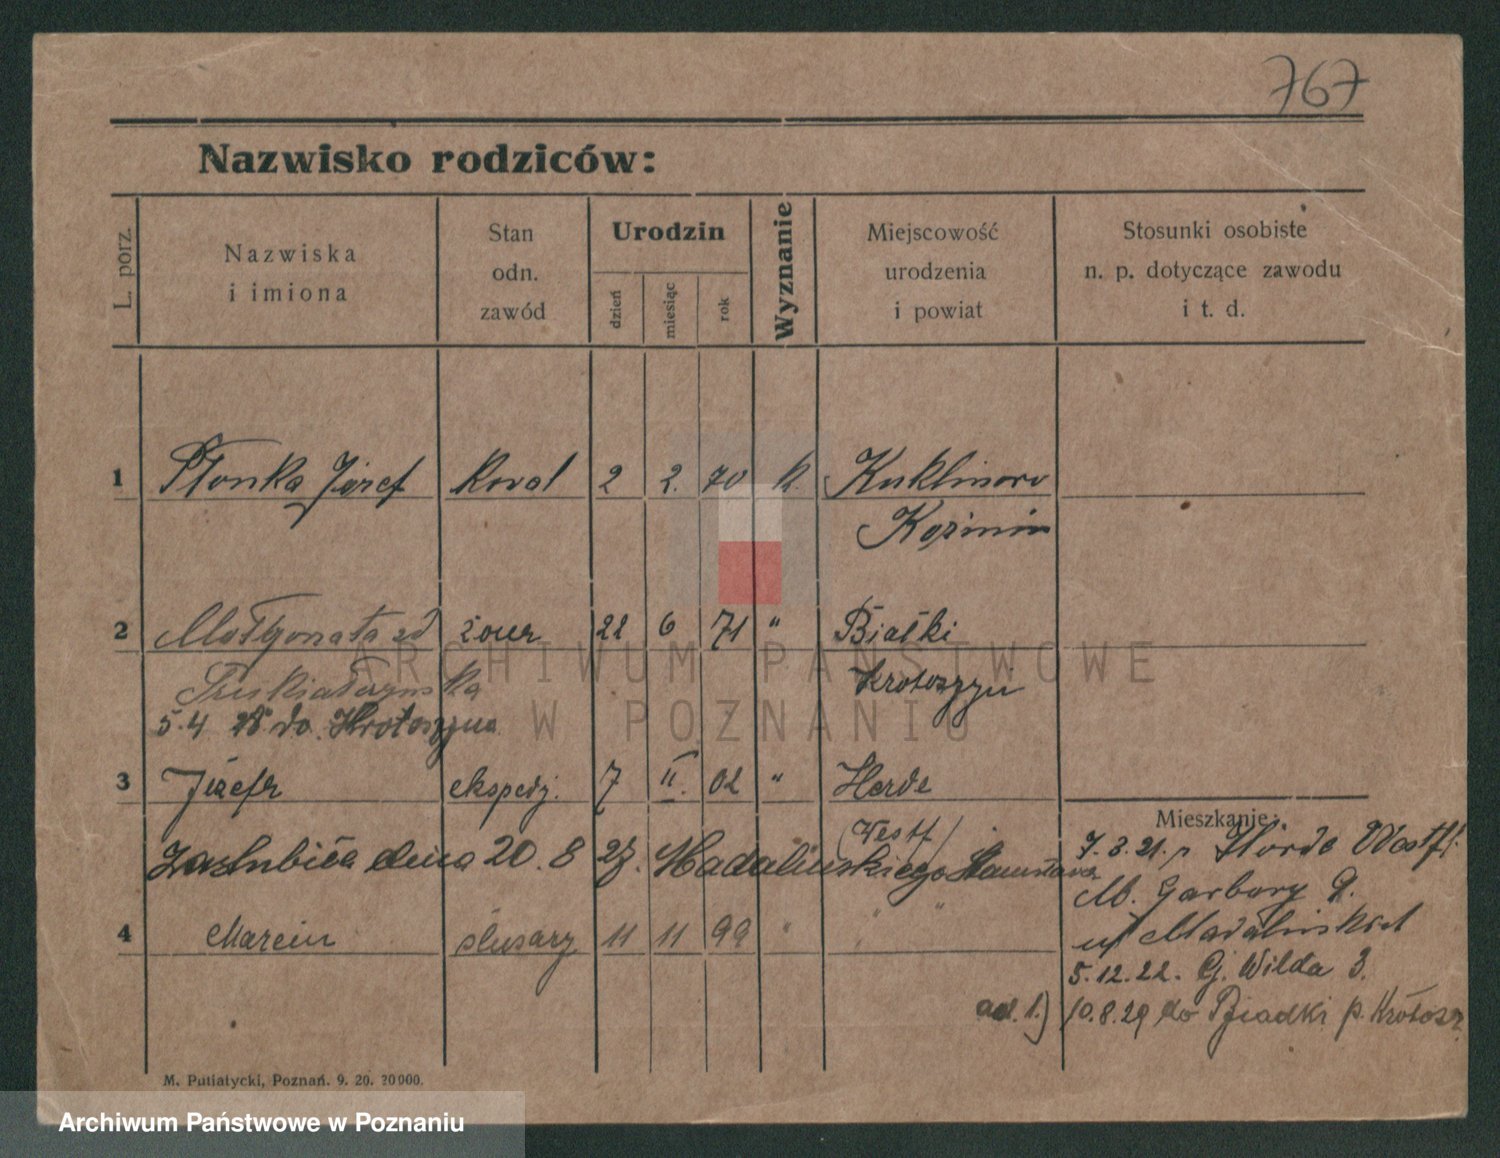 767
Nazwisko rodziców:
L. porz.
Nazwiska
i imiona
Stan
odn.
zawód
Urodzin
dzień
miesiąc
rok
Wyznanie
Miejscowość
urodzenia
i powiat
Stosunki osobiste
n. p. dotyczące zawodu
i t. d.
1 Płonka Józef Koval 2 2. 70 k. Kuklinow
Koźmin
2 Małgorzata zd żona 22 6 71 " Białki
Krotoszyn
5.4 28 do Krotoszyna
3 Józefa ekspedj. 7 II. 02 " Herde
(Westf)
Mieszkanie:
zaślubiła dnia 20.8 27. Madalińskiego Stanisława
7.3.21. z Hörde Westf.
M. Garbary 9.
4 Marcin ślusarz 11 11 99 " " "
Madalińskich
5.12.22. G. Wilda 3.
ad. 1.) 10.8.29 do Biadki p. Krotosz
M. Putiatycki, Poznań. 9. 20. 20000.
ARCHIWUM PAŃSTWOWE
W POZNANIU
Archiwum Państwowe w Poznaniu